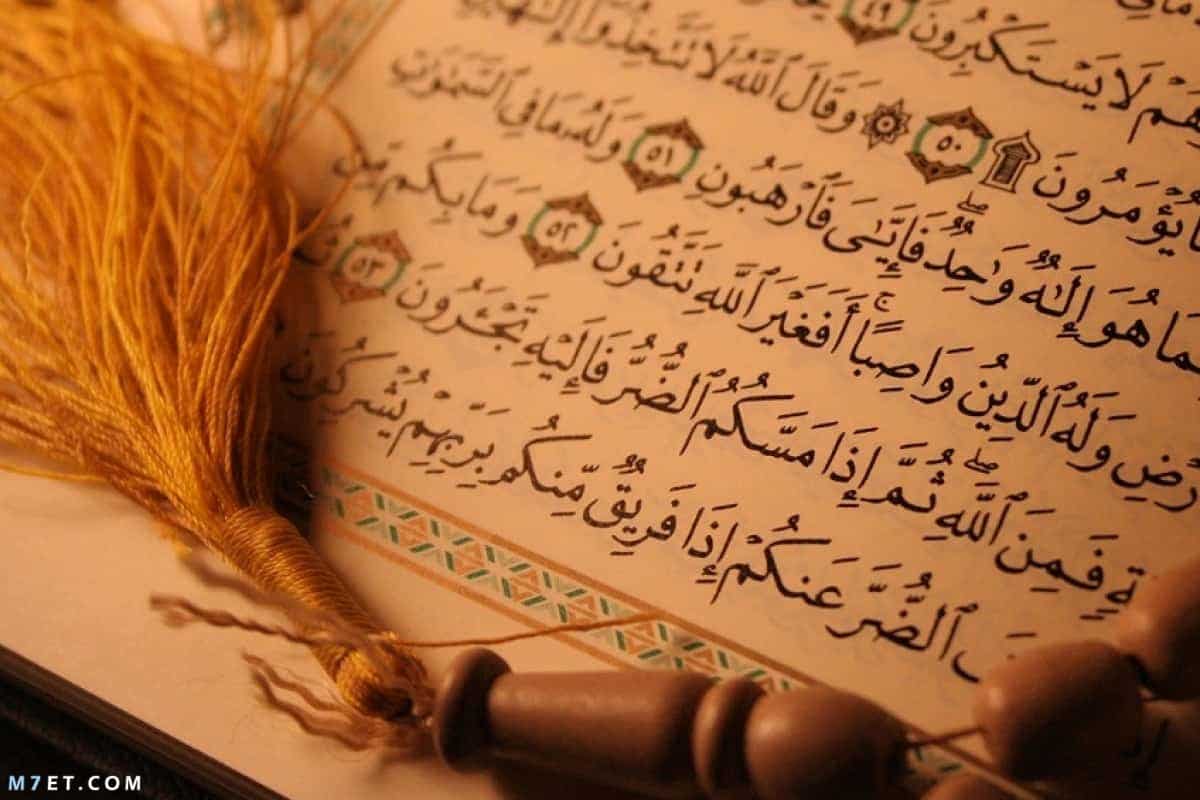 لَا يَسْتَكْبِرُونَ ٤٩
يُؤْمَرُونَ ۩ ٥٠ ۞ وَقَالَ ٱللَّهُ لَا تَتَّخِذُوٓا۟
هُوَ إِلَٰهٌ وَٰحِدٌ ۖ فَإِيَّٰىَ فَٱرْهَبُونِ ٥١ وَلَهُۥ مَا فِى ٱلسَّمَٰوَٰتِ
وَلَهُ ٱلدِّينُ وَاصِبًا ۚ أَفَغَيْرَ ٱللَّهِ تَتَّقُونَ ٥٢ وَمَا بِكُم مِّن
فَمِنَ ٱللَّهِ ۖ ثُمَّ إِذَا مَسَّكُمُ ٱلضُّرُّ فَإِلَيْهِ تَجْـَٔرُونَ ٥٣
ٱلضُّرَّ عَنكُمْ إِذَا فَرِيقٌ مِّنكُم بِرَبِّهِمْ يُشْرِكُونَ
M7ET.COM